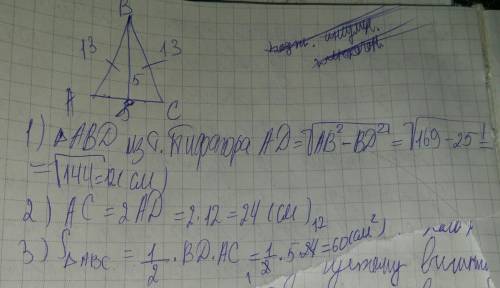 B
13 13
5
A D C
1) ΔABD из т. Пифагора AD=√AB²-BD²=√169-25=
=√144=12(см)
2) AC=2AD=2·12=24(см)
3) S ΔABC = 1/2 · BD·AC=1/2·5·24=60(см²)